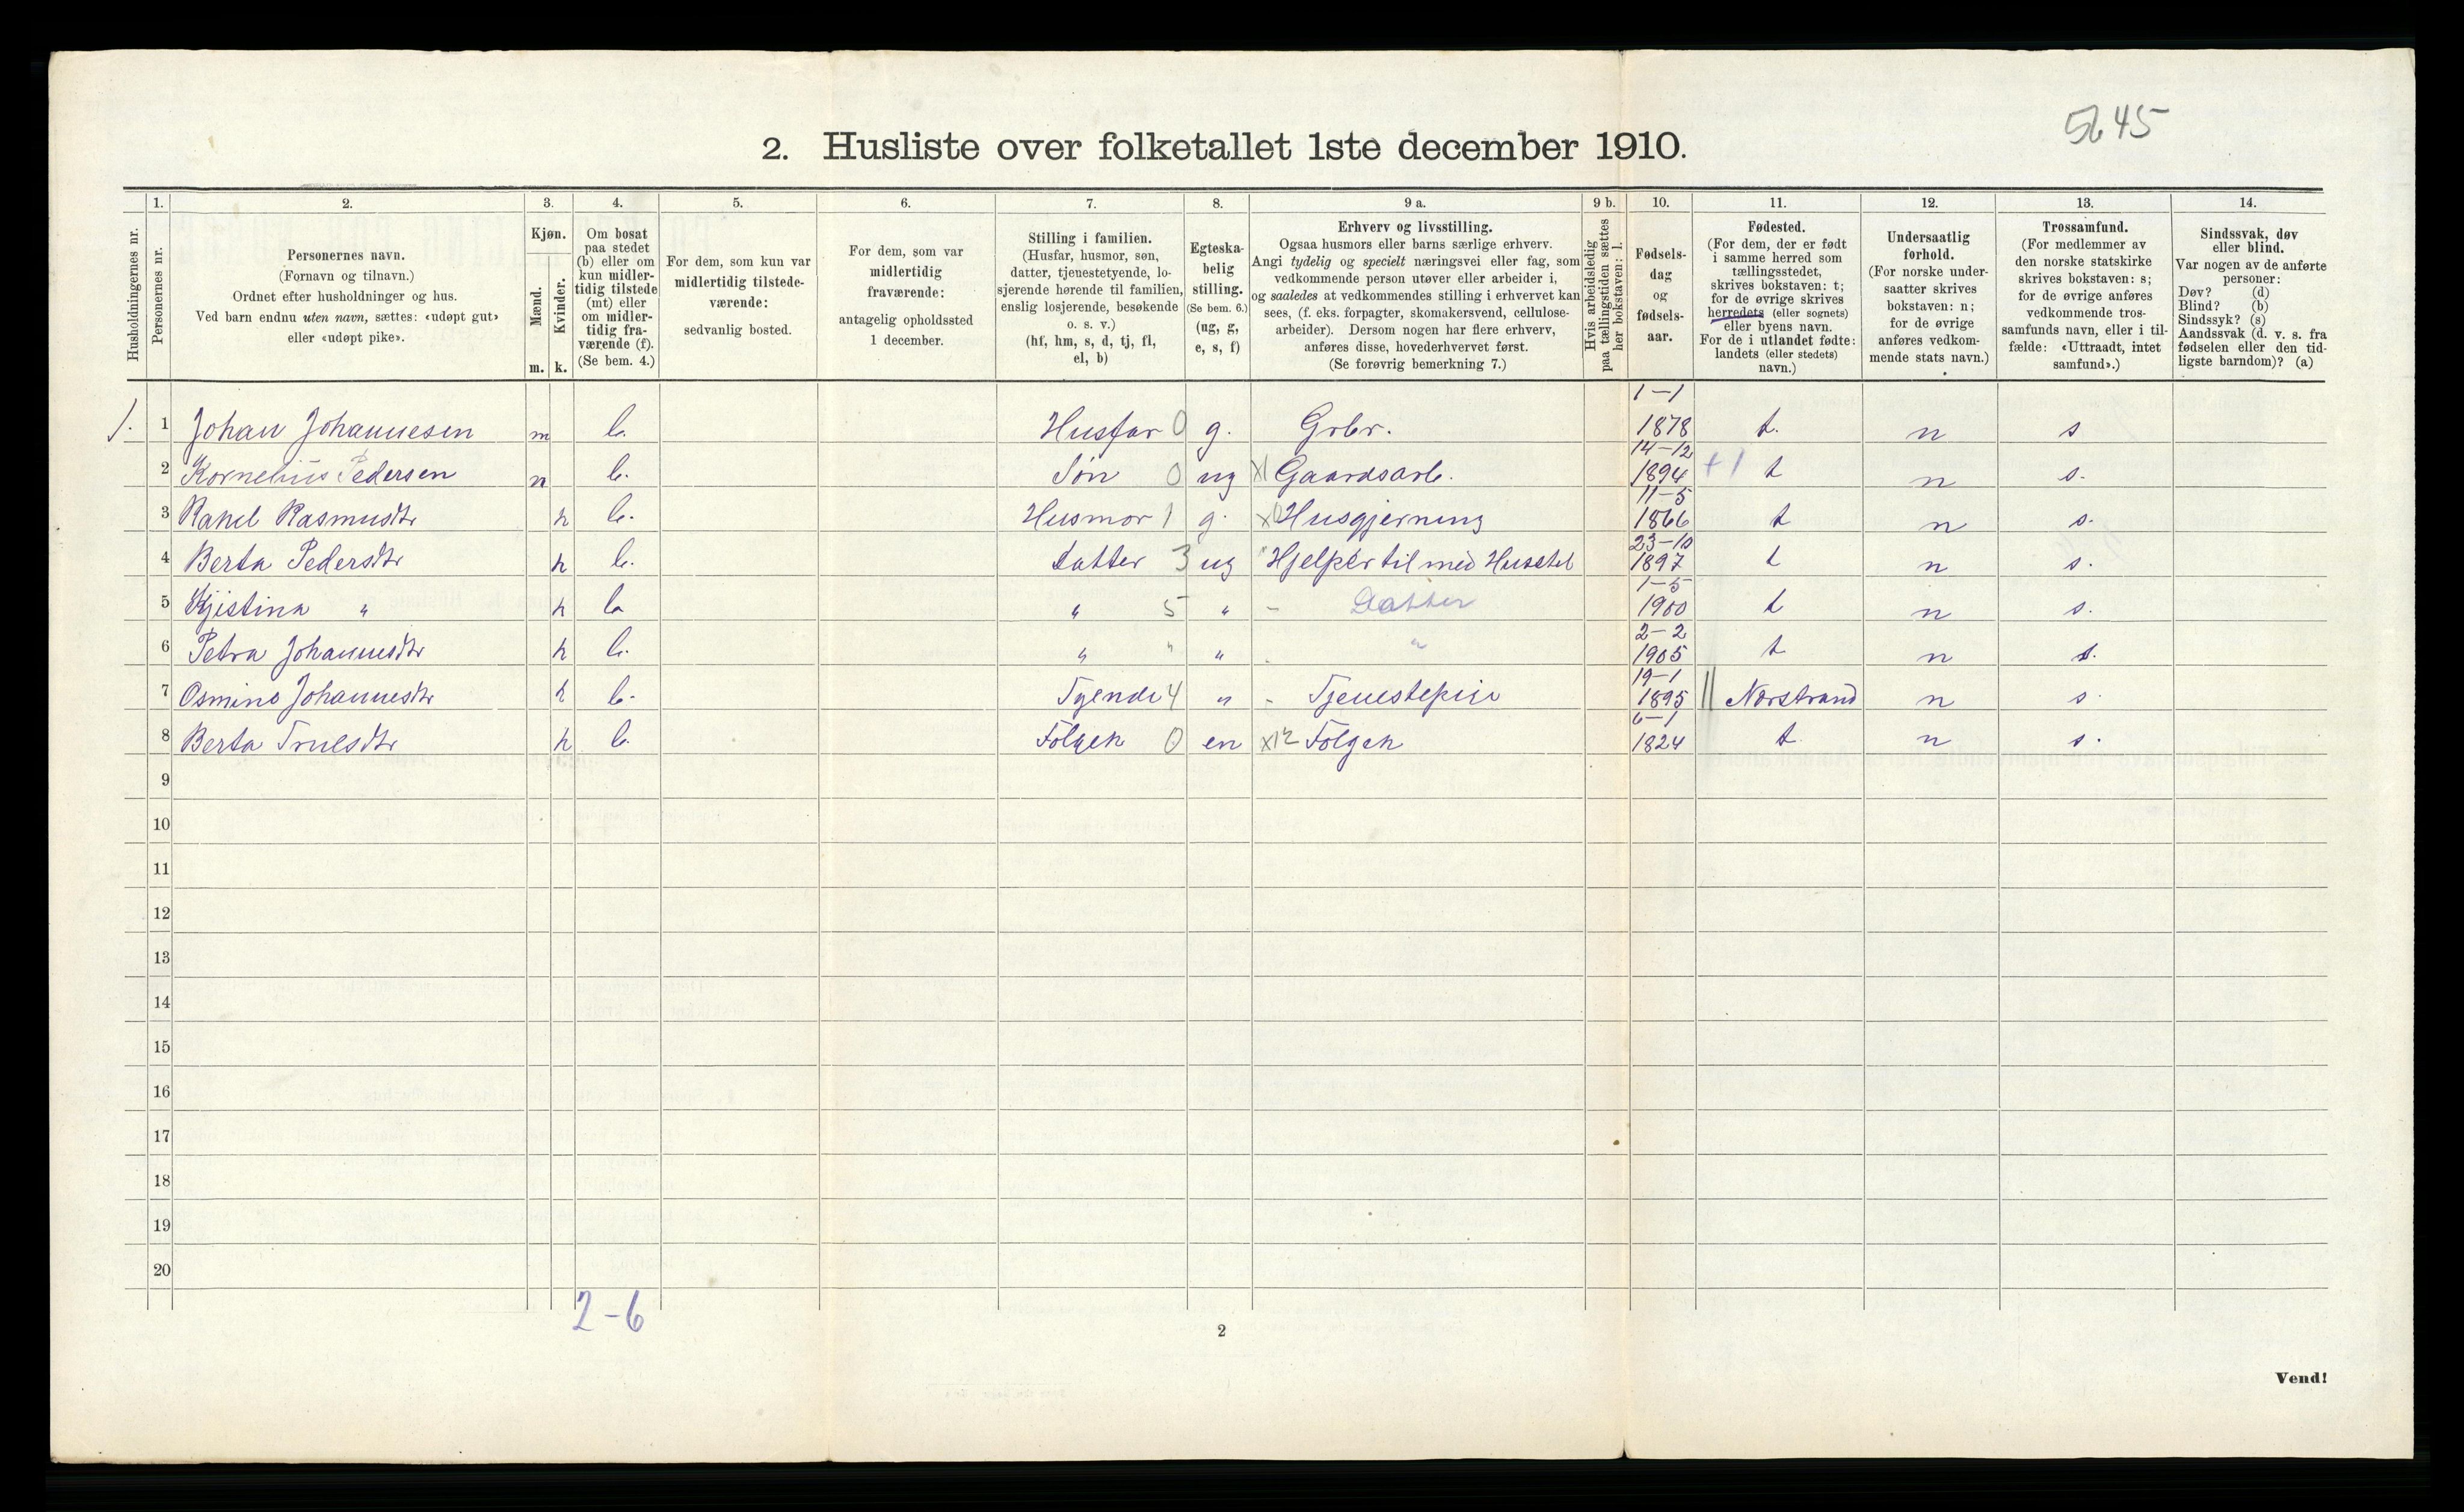 5645
2. Husliste over folketallet 1ste december 1910.
Husholdningernes nr.
1. 2. 3. 4. 5. 6. 7. 8. 9 a. 9 b. 10. 11. 12. 13. 14.
Personernes nr.
Personernes navn.
(Fornavn og tilnavn.)
Ordnet efter husholdninger og hus.
Ved barn endnu uten navn, sættes: «udøpt gut»
eller «udøpt pike».
Kjøn.
Mænd.
Kvinder.
m. k.
Om bosat
paa stedet
(b) eller om
kun midler-
tidig tilstede
(mt) eller
om midler-
tidig fra-
værende (f).
(Se bem. 4.)
For dem, som kun var
midlertidig tilstede-
værende:
sedvanlig bosted.
For dem, som var
midlertidig
fraværende:
antagelig opholdssted
1 december.
Stilling i familien.
(Husfar, husmor, søn,
datter, tjenestetyende, lo-
sjerende hørende til familien,
enslig losjerende, besøkende
o. s. v.)
(hf, hm, s, d, tj, fl,
el, b)
Egteska-
belig
stilling.
(Se bem. 6.)
(ug, g,
e, s, f)
Erhverv og livsstilling.
Ogsaa husmors eller barns særlige erhverv.
Angi tydelig og specielt næringsvei eller fag, som
vedkommende person utøver eller arbeider i,
og saaledes at vedkommendes stilling i erhvervet kan
sees, (f. eks. forpagter, skomakersvend, cellulose-
arbeider). Dersom nogen har flere erhverv,
anføres disse, hovederhvervet først.
(Se forøvrig bemerkning 7.)
Hvis arbeidsledig
paa tællingstiden sættes
her bokstaven: l.
Fødsels-
dag
og
fødsels-
aar.
Fødested.
(For dem, der er født
i samme herred som
tællingsstedet,
skrives bokstaven: t;
for de øvrige skrives
herredets (eller sognets)
eller byens navn.
For de i utlandet fødte:
landets (eller stedets)
navn.)
Undersaatlig
forhold.
(For norske under-
saatter skrives
bokstaven: n;
for de øvrige
anføres vedkom-
mende stats navn.)
Trossamfund.
(For medlemmer av
den norske statskirke
skrives bokstaven: s;
for de øvrige anføres
vedkommende tros-
samfunds navn, eller i til-
fælde: «Uttraadt, intet
samfund».)
Sindssvak, døv
eller blind.
Var nogen av de anførte
personer:
Døv? (d)
Blind? (b)
Sindssyk? (s)
Aandssvak (d. v. s. fra
fødselen eller den tid-
ligste barndom)? (a)
1-1
1. 1 Johan Johannesen m b. Husfar 0 g. Grbr. 1878 t. n s
14-12
2 Kornelius Pedersen m b. Søn 0 ug x1 Gaardsarb. 1894 +1 t n s.
11-5
3 Rakel Rasmusdtr k b. Husmor 1 g. Husgjerning 1866 t n s.
23-10
4 Berta Pedersdtr k b. Datter 3 ug Hjelper til med Husstel 1897 t n s.
1-5
5 Kjistina " k b " 5 " - Datter 1900 t n s.
2-2
6 Petra Johannesdtr k b. " " " - " 1905 t n s.
19-1
7 Osmine Johannesdtr k b. Tyende 4 " - Tjenestepige 1895 || Nærstrand n s
6-1
8 Berta Trulsdtr k b. Følgek 0 en x12 Følgek 1824 t n s.
9
10
11
12
13
14
15
16
17
18
19
20
2-6
2
Vend!